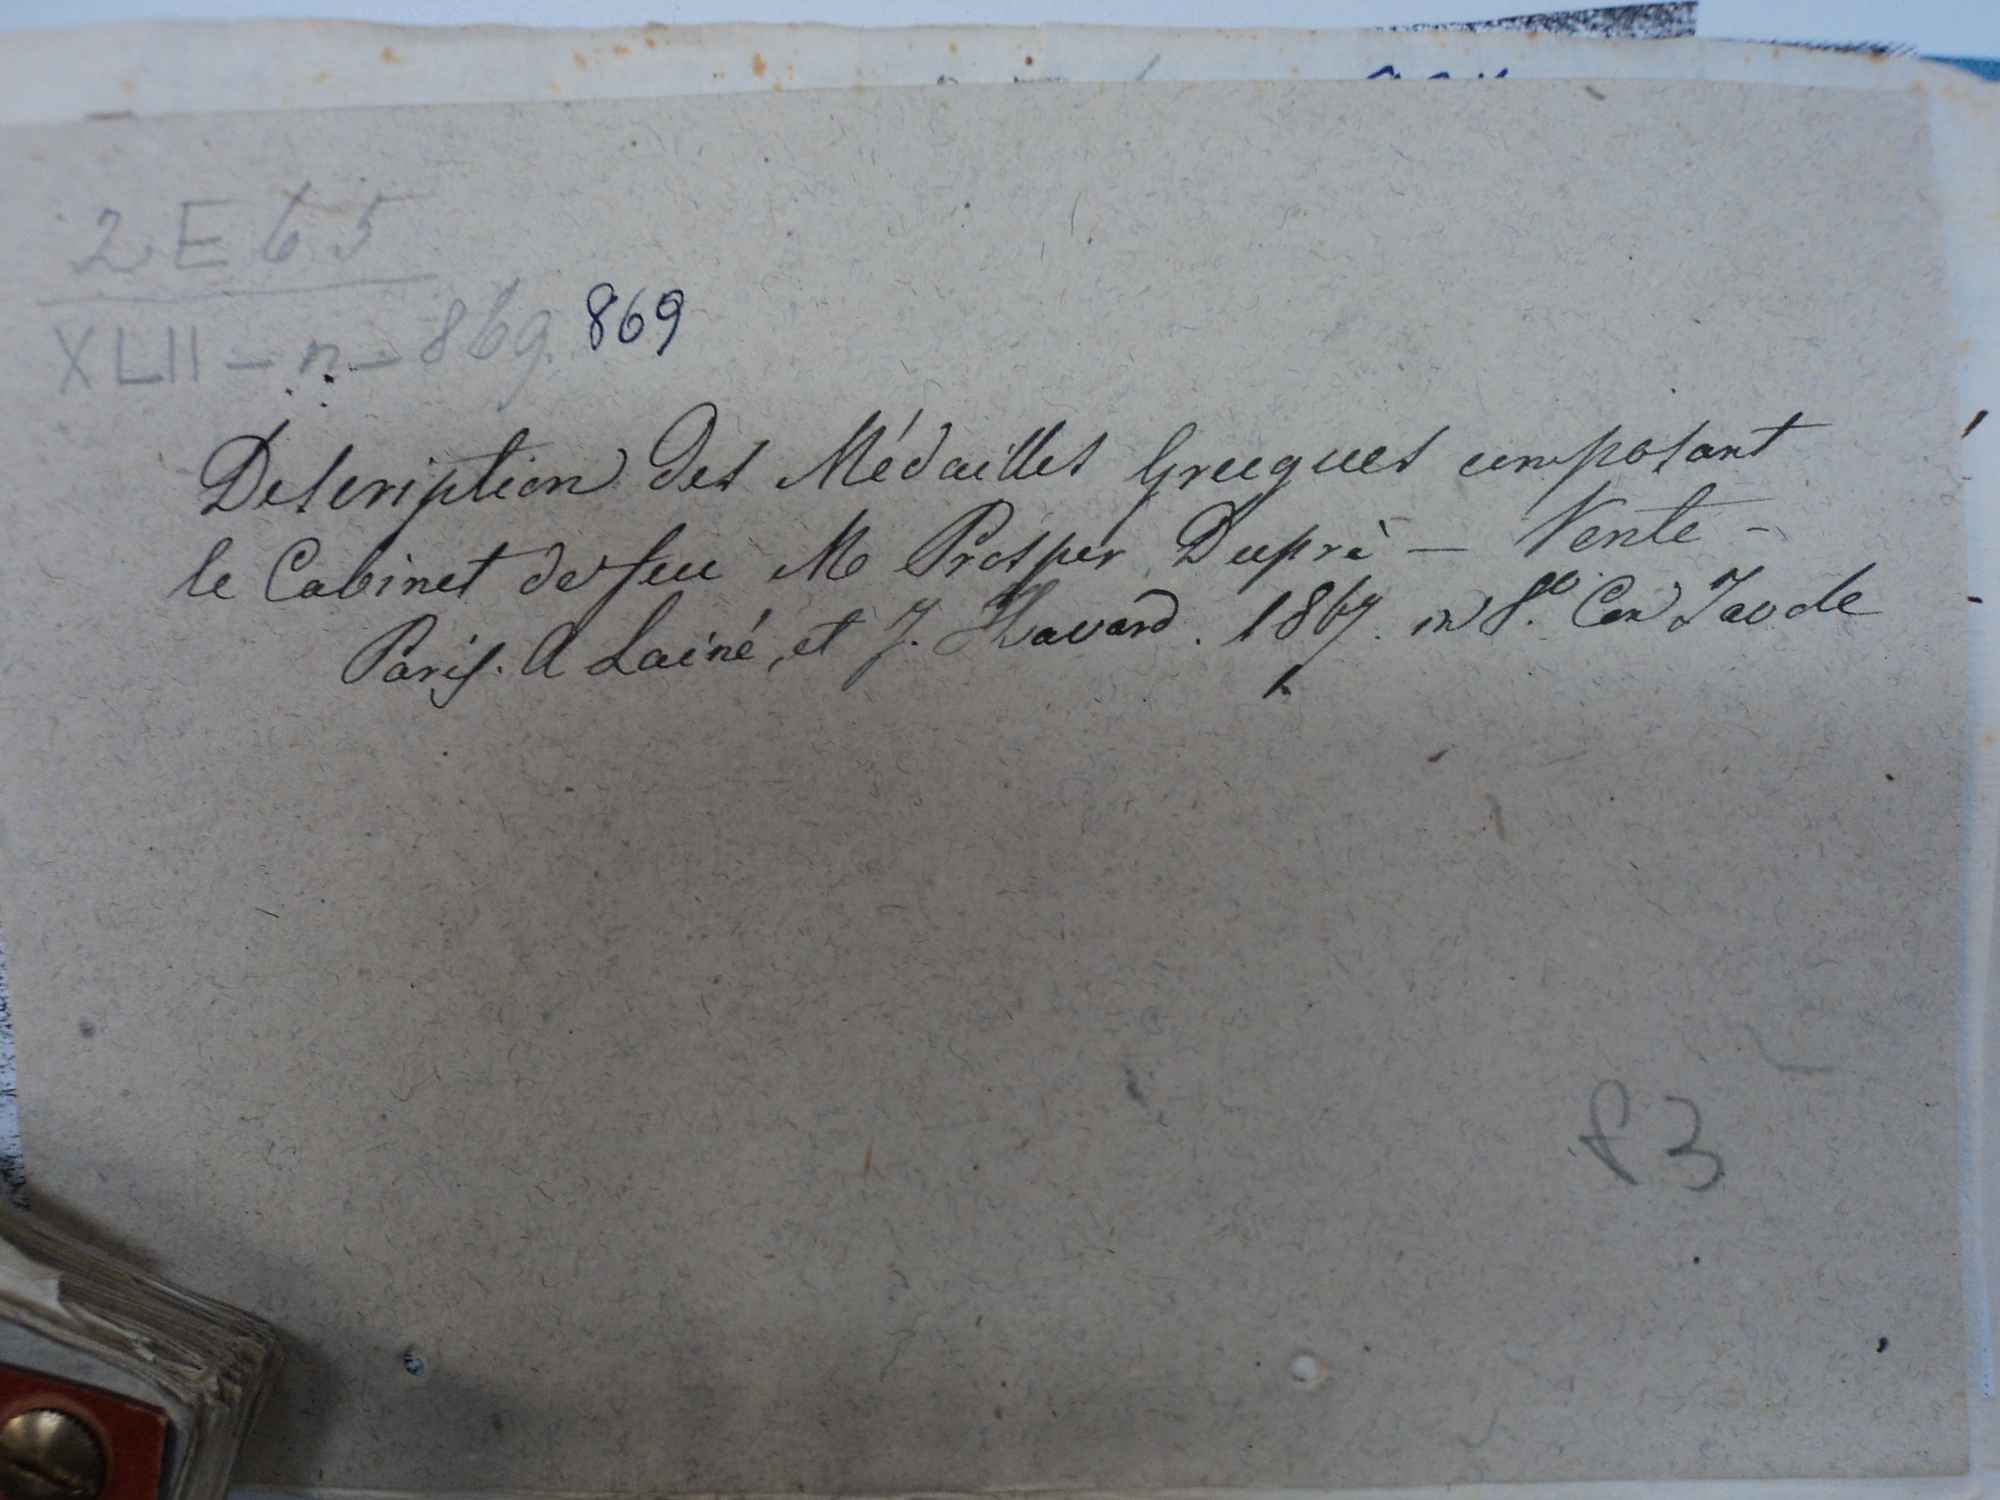 2 E 65
XLII - n - 869. 869
Description des Médailles Grecques composant
le Cabinet de feu M Prosper Dupré - Vente -
Paris. A Lainé, et J. Havard. 1867. in 8.º Con Tavole
83